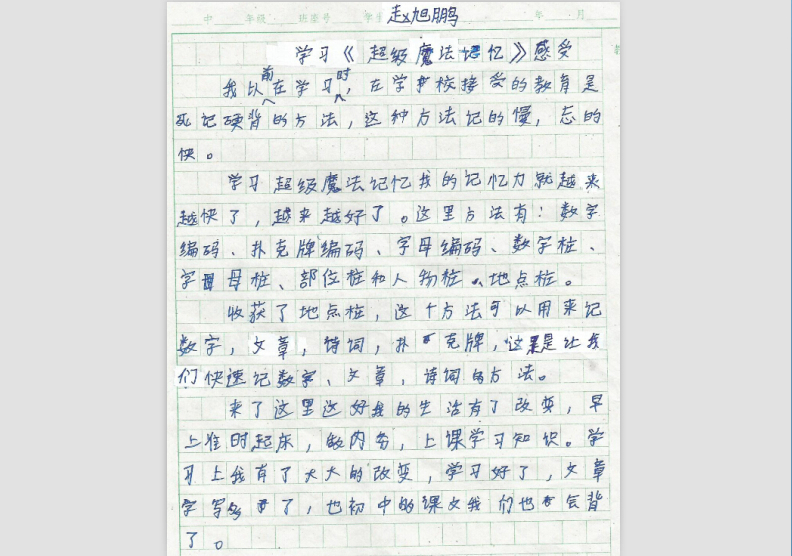 中 年级 班座号 赵旭鹏 年 月
学习《超级魔法记忆》感受
我以前在学习时,在学校接受的教育是
死记硬背的方法,这种方法记的慢,忘的
快。
学习超级魔法记忆我的记忆力就越来
越快了,越来越好了。这里方法有:数字
编码、扑克牌编码、字母编码、数字桩、
字母母桩、部位桩和人物桩、地点桩。
收获了地点桩,这个方法可以用来记
数字,文章,诗词,扑克牌,这里是让我
们快速记数字、文章,诗词的方法。
来了这里这好我的生活有了改变,早
上准时起床,做内务,上课学习知识。学
习上我有了大大的改变,学习好了,文章
学写多了,也初中的课文我们也会背
了。